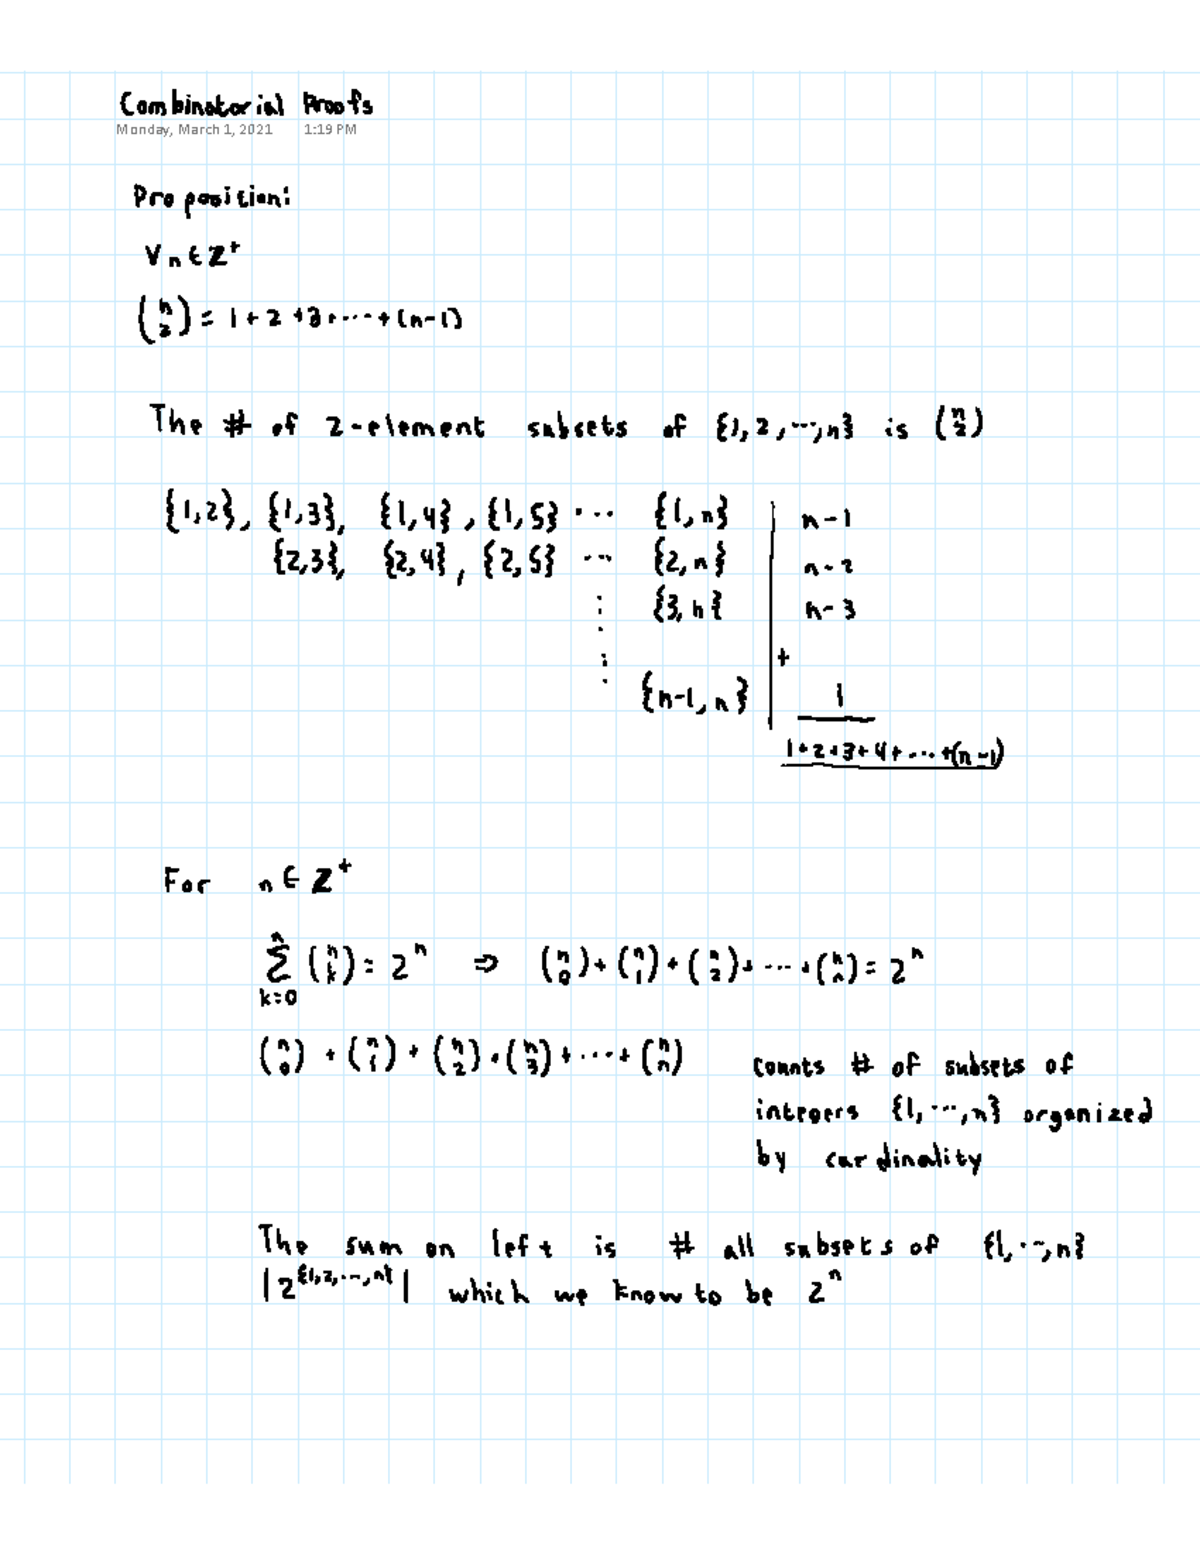 Combinatorial Proofs
Monday, March 1, 2021 1:19 PM
Proposition:
∀ n ∈ Z⁺
(n 2) = 1 + 2 + 3 + ... + (n-1)
The # of 2-element subsets of {1, 2, ..., n} is (n 2)
{1,2}, {1,3}, {1,4}, {1,5} ... {1,n} | n-1
{2,3}, {2,4}, {2,5} ... {2,n} | n-2
⋮ {3,n{ | n-3
+
⋮ {n-1, n} | 1
1+2+3+4+...+(n-1)
For n ∈ Z⁺
n
Σ (n k) = 2ⁿ ⇒ (n 0) + (n 1) + (n 2) + ... + (n n) = 2ⁿ
k=0
(n 0) + (n 1) + (n 2) + (n 3) + ... + (n n) counts # of subsets of
integers {1, ..., n} organized
by cardinality
The sum on left is # all subsets of {1, ..., n}
|2^{1,2,...,n}| which we know to be 2ⁿ